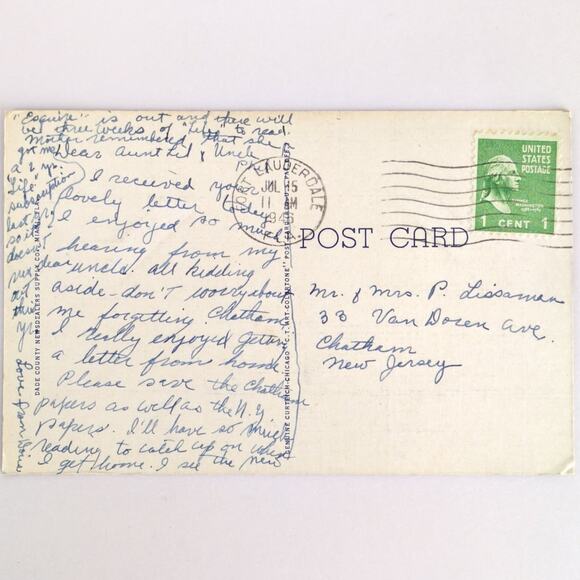 "Esquire" is out and there will
be three weeks of "Life" to read.
Mother remembered that she
got me
a 2 yr.
"Life"
subscription
last
so it
doesn't
out
this
yr.
Love from
Dear Aunt Lil & Uncle
I received your
lovely letter today
I enjoyed so much
hearing from my
dear uncle. All kidding
aside - don't worry about
me forgetting Chatham
I really enjoyed getting
a letter from home.
Please save the Chatham
papers as well as the N.Y
papers. I'll have so much
reading to catch up on when
I get home. I see the new
DADE COUNTY NEWSDEALERS SUPPLY CO., MIAMI, FLA.
GENUINE CURTEICH-CHICAGO "C.T. ART-COLORTONE" POST CARD
FORT LAUDERDALE
JUL 15
11 AM
FLA.
UNITED
STATES
POSTAGE
WASHINGTON
1 CENT 1
POST CARD
Mr. & Mrs. P. Lissaman
33 Van Doren Ave.
Chatham
New Jersey